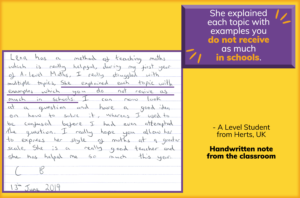 She explained
each topic with
examples you
do not receive
as much
in schools.
Lena has a method of teaching maths
which is really helpful, during my first year
of A-level Maths. I really struggled with
multiple topics. She explained each topic with
examples which you do not receive as
much in schools. I can now look
at a question and have a good idea
on how to solve it, whereas I used to
be confused before I had even attempted
the question. I really hope you allow her
to express her style of maths at a greater
scale. She is a really good teacher and
she has helped me so much this year.
13th June 2019
- A Level Student
from Herts, UK
Handwritten note
from the classroom